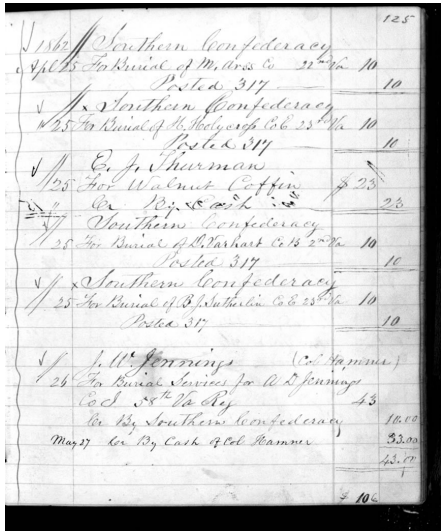 125
1862 // Southern Confederacy
25 For Burial of M. Co 22nd Va 10
Posted 317 10
// x Southern Confederacy
25 For Burial of H. Holycrop Co E. 23rd Va 10
Posted 317 10
// E. J. Thurman
25 For Walnut Coffin $ 23
Cr By Cash 23
Southern Confederacy
25 For Burial of D. Varhart Co B 2nd Va 10
Posted 317 10
// x Southern Confederacy
25 For Burial of B. J. Sutherlin Co E. 23rd Va 10
Posted 317 10
// J. W. Jennings (Col Hamner)
26 For Burial Services for A D Jennings
Co I 58th Va Reg 43
Cr By Southern Confederacy 10.00
May 27 Cr By Cash of Col Hamner 33.00
43.00
$ 106